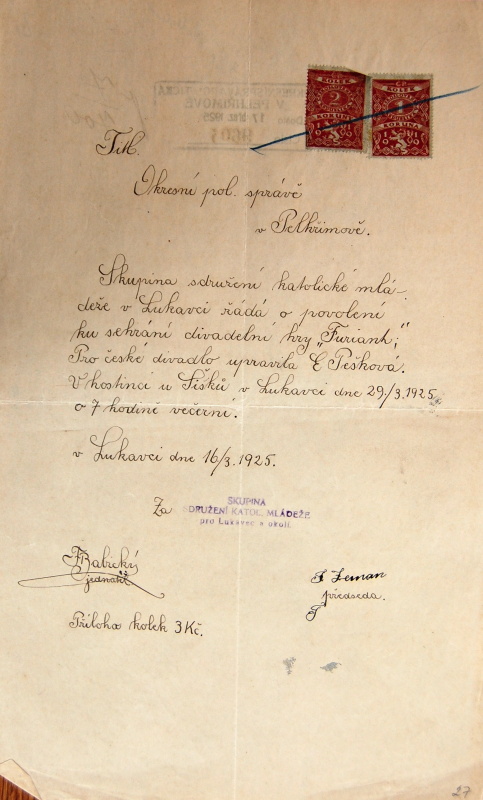 Titl.
Okresní pol. správě
v Pelhřimově.
Skupina sdružení katolické mlá-
deže v Lukavci řádá o povolení
ku sehrání divadelní hry „Furiant;"
Pro české divadlo upravila E Pešková.
V hostinci u Šišků v Lukavci dne 29./3.1925.
o 7 hodině večerní.
v Lukavci dne 16/3.1925.
Za
SKUPINA
SDRUŽENÍ KATOL. MLÁDEŽE
pro Lukavec a okolí.
F Babický
jednatel
F Zeman
předseda.
Příloha kolek 3 Kč.
KOLEK
2
KORUNY
KOLEK
1
KORUNA
V PELHŘIMOVĚ
1925
27